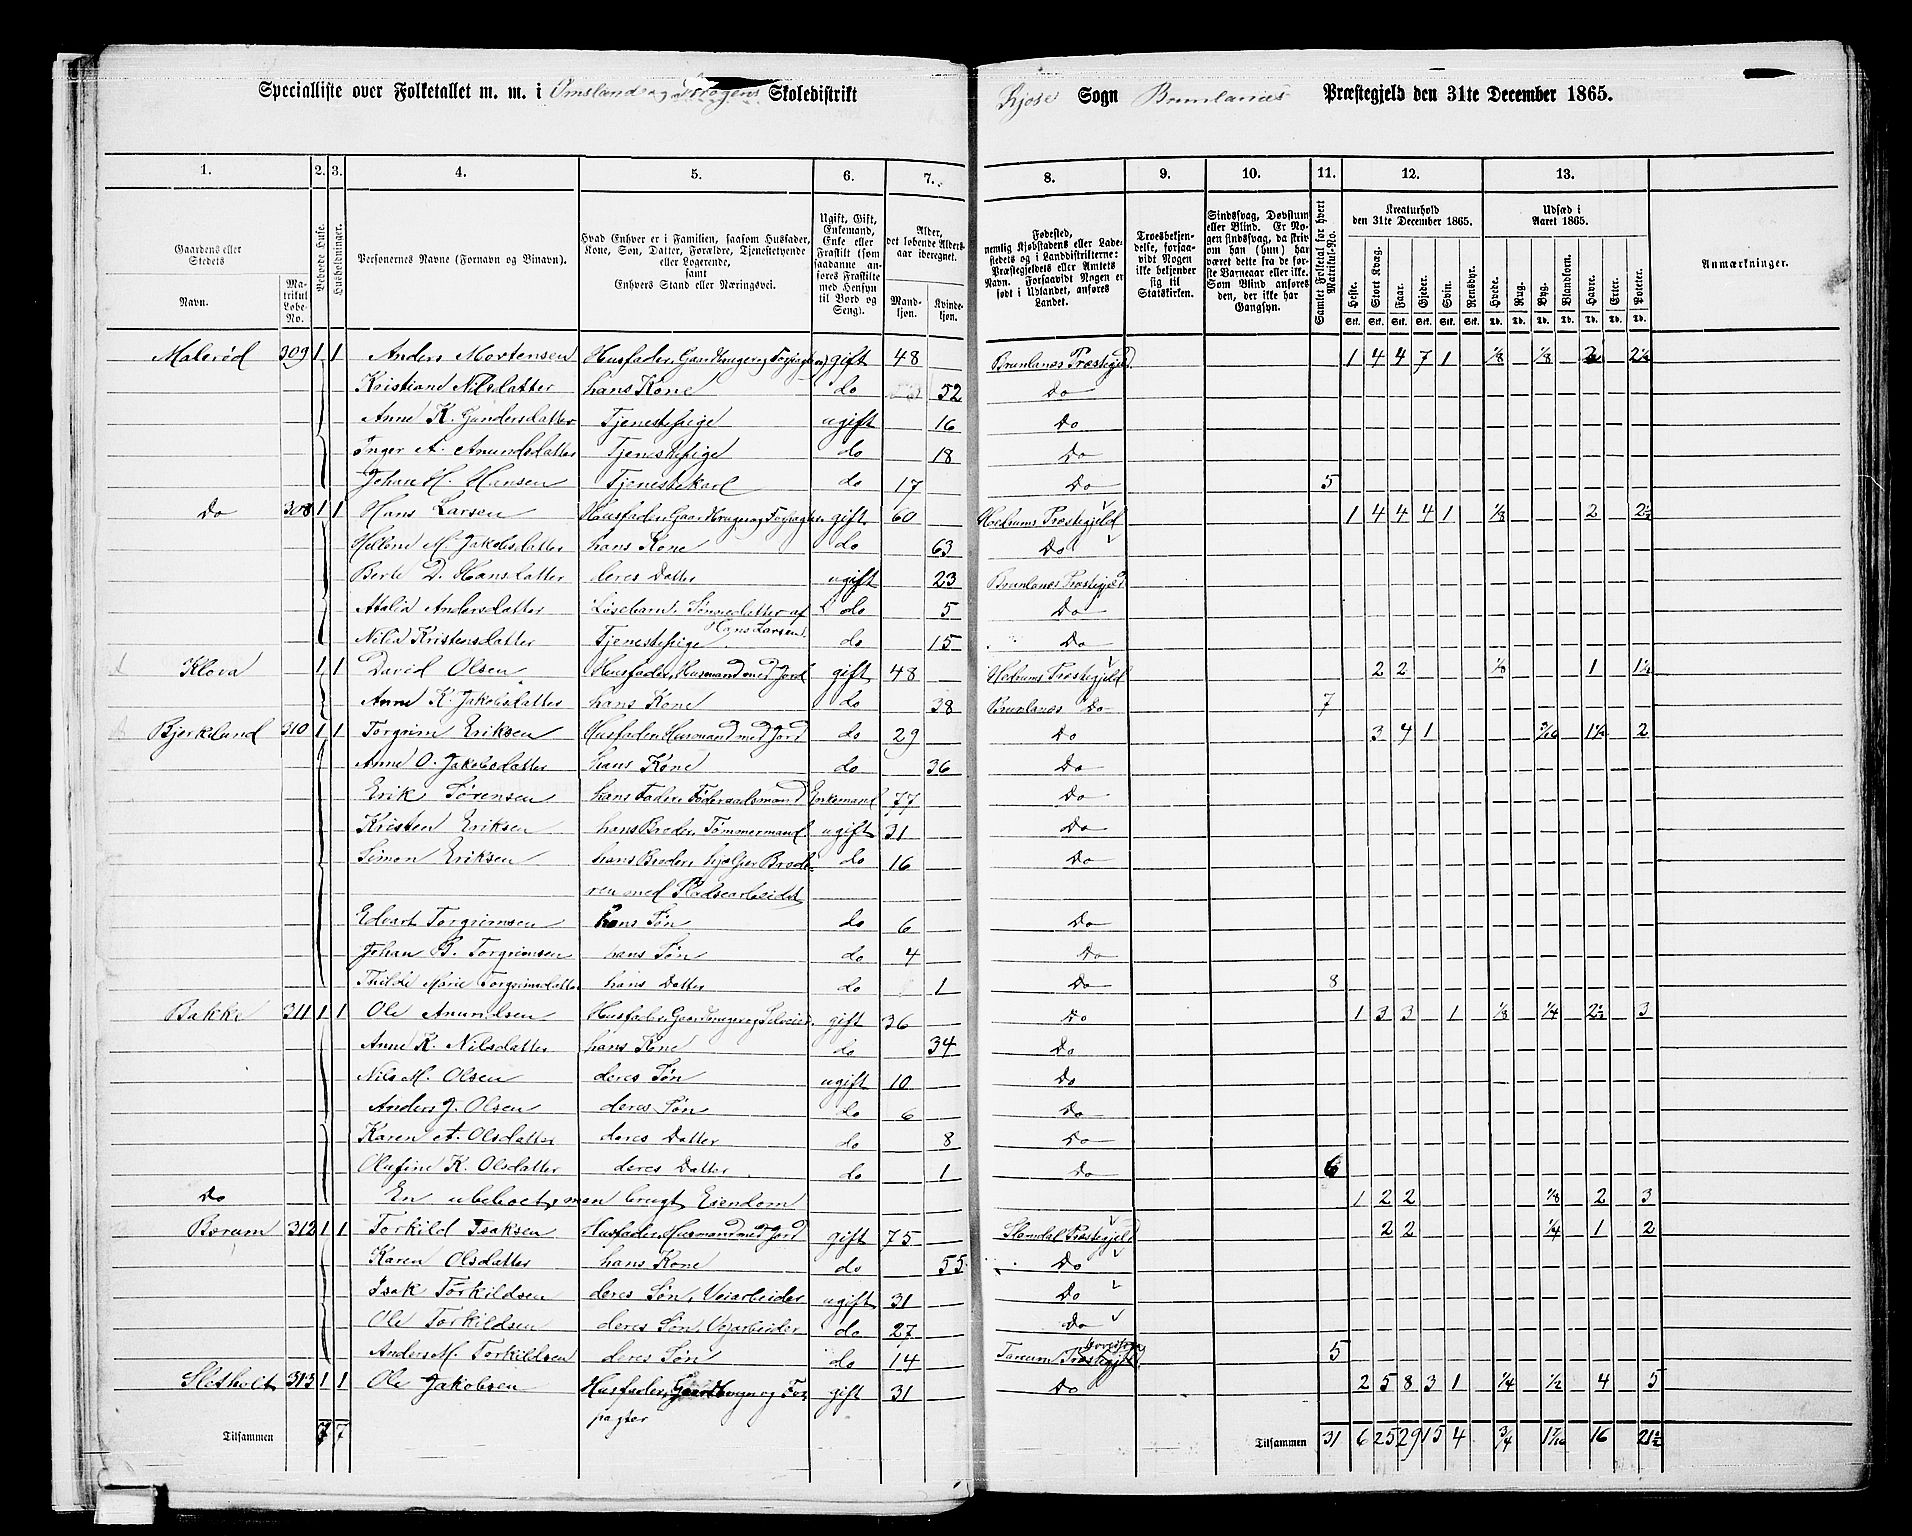 Specialliste over Folketallet m. m. i Omsland og Skogens Skoledistrikt Kjose Sogn Brunlanæs Præstegjeld den 31te December 1865.
1. 2. 3. 4. 5. 6. 7. 8. 9. 10. 11. 12. 13.
Gaardens eller Stedets Navn. Matrikul Løbe-No. Beboede Huse. Husholdninger. Personernes Navne (Fornavn og Binavn).
Hvad Enhver er i Familien, saasom Husfader, Kone, Søn, Datter, Forældre, Tjenestetyende eller Logerende, samt Enhvers Stand eller Næringsvei.
Ugift, Gift, Enkemand, Enke eller Fraskilt (som saadanne anføres Fraskilte med Hensyn til Bord og Seng).
Alder, det løbende Alders-aar iberegnet. Mandkjøn. Kvindekjøn.
Fødested, nemlig Kjøbstadens eller Ladestedets og i Landdistrikterne: Præstegjeldets eller Amtets Navn. Forsaavidt Nogen er født i Udlandet, anføres Landet.
Troesbekjendelse, forsaavidt Nogen ikke bekjender sig til Statskirken.
Sindssvag, Døvstum eller Blind. Er Nogen sindssvag, da skrives om han (hun) har været dette fra de første Barneaar eller ikke. Som Blind anføres den, der ikke har Gangsyn.
Samlet Folketal for hvert Matrikul-No.
Kreaturhold den 31te December 1865. Heste. Stort Kvæg. Faar. Gjeder. Svin. Rensdyr.
Udsæd i Aaret 1865. Hvede. Rug. Byg. Blandkorn. Havre. Erter. Poteter.
Anmærkninger.
Malerød 309 1 1 Anders Mortensen Husfader, Gaardbruger og Forpagter gift 48 Brunlanæs Præstegjeld 1 4 4 7 1 1/8 1/8 2 2½
Kristiane Nilsdatter hans Kone do 52 Do
Anne K. Gundersdatter Tjenestepige ugift 16 Do
Inger A. Amundsdatter Tjenestepige do 18 Do
Johan H. Hansen Tjenestekarl do 17 Do 5
Do 308 1 1 Hans Larsen Husfader, Gaardbruger og Forpagter gift 60 Hedrums Præstegjeld 1 4 4 4 1 1/8 2 2½
Hellene M. Jakobsdatter hans Kone do 63 Do
Berte D. Hansdatter deres Datter ugift 23 Brunlanæs Præstegjeld
Atalia Andersdatter Løsebarn, Sønnedatter af do 5 Do
Hans Larsen
Nilia Kristensdatter Tjenestepige do 15 Do
Klova 1 1 David Olsen Husfader, Husmand med Jord gift 48 Hedrums Præstegjeld 2 2 1/8 1 1½
Anne K. Jakobsdatter hans Kone do 38 Brunlanæs Do 7
Bjerkelund 310 1 1 Torgrim Eriksen Husfader Husmand med Jord do 29 Do 3 4 1 3/16 1½ 2
Anne O. Jakobsdatter hans Kone do 36 Do
Erik Sørensen hans Fader, Føderaadsmand Enkemand 77 Do
Kristen Eriksen hans Broder, Tømmermand ugift 31 Do
Simon Eriksen hans Broder, hjælper Brode- do 16 Do
ren med Pladsearbeidet
Edvart Torgrimsen hans Søn do 6 Do
Johan B. Torgrimsen hans Søn do 4 Do
Thilde Marie Torgrimsdatter hans Datter do 1 Do 8
Bakke 311 1 1 Ole Amundsen Husfader, Gaardbruger og Selveier gift 36 Do 1 3 3 1 1/8 1/4 2½ 3
Anne K. Nilsdatter hans Kone do 34 Do
Nils M. Olsen deres Søn ugift 10 Do
Anders J. Olsen deres Søn do 6 Do
Karen A. Olsdatter deres Datter do 8 Do
Olufine K. Olsdatter deres Datter do 1 Do 6
Do En ubeboet, men brugt Eiendom 1 2 2 1/8 2 3
Børum 312 1 1 Torkild Isaksen Husfader, Husmand med Jord gift 75 Slemdal Præstegjeld 2 2 1/4 1 2
Karen Olsdatter hans Kone do 55 Do
Isak Torkildsen deres Søn, Veiarbeider ugift 31 Do
Ole Torkildsen deres Søn, Vejarbeider do 27 Do
Anders M. Torkildsen deres Søn do 14 Tanum Præstegjeld 5
Sletholt 313 1 1 Ole Jakobsen Husfader, Gaardbruger og For- gift 31 Do 2 5 8 3 1 1/4 1/2 4 5
pagter
Tilsammen 7 7 Tilsammen 31 6 25 29 15 4 3/4 1 7/16 16 21½